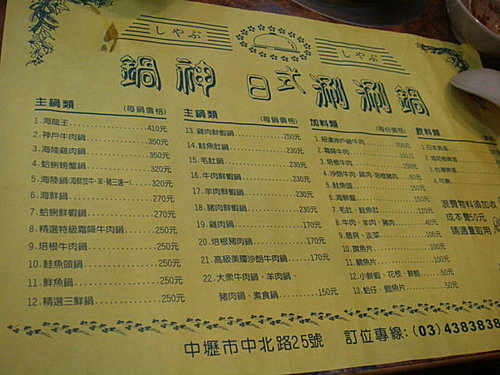 しゃぶ
しゃぶ
鍋神 日式涮涮鍋
主鍋類 (每鍋價格)
1.海龍王 410元
2.神戶牛肉鍋 350元
3.海陸雞肉鍋 350元
4.蛤蜊螃蟹鍋 320元
5.海陸鍋(海鮮加牛·羊·豬三選一) 320元
6.海鮮鍋 270元
7.蛤蜊鮮蝦鍋 270元
8.精選特級霜降牛肉鍋 250元
9.培根牛肉鍋 250元
10.鮭魚頭鍋 250元
11.鮮魚鍋 250元
12.精選三鮮鍋 250元
主鍋類 (每鍋價格)
13.雞肉鮮蝦鍋 250元
14.鮭魚肚鍋 230元
15.毛肚鍋 230元
16.牛肉鮮蝦鍋 230元
17.羊肉鮮蝦鍋 230元
18.豬肉鮮蝦鍋 230元
19.雞肉鍋 170元
20.培根豬肉鍋 170元
21.高級美國沙朗牛肉鍋 170元
22.大衆牛肉鍋·羊肉鍋·
豬肉鍋·素食鍋 150元
加料類 (每份價格)
2.霜降牛肉
3.培根牛肉
4.沙朗牛肉·雞肉·培根豬肉
5.鮭魚頭 150元
6.海鮮盤 150元
7.毛肚·鮭魚肚 120元
8.牛肉·羊肉·豬肉
9.蝦貝·淡菜 100元
10.旗魚片 100元
11.鯛魚片 100元
12.小鮮蝦·花枝·鮮蚵 50元
13.蛤仔·鮑魚片 50元
飲料類
1.日本清酒
4.可樂
浪費物料添加收
成本費50元
請適量取用
中壢市中北路25號 訂位專線:(03)4383838